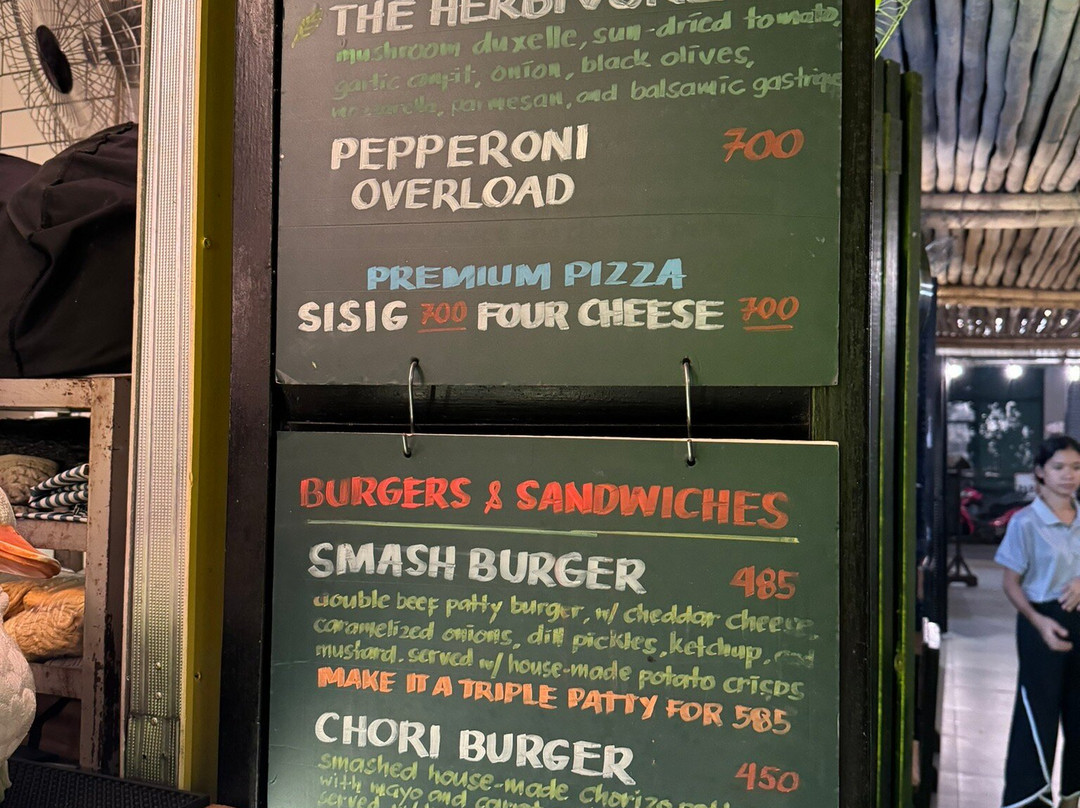 THE HERBIVORE
mushroom duxelle, sun-dried tomato,
garlic confit, onion, black olives,
mozzarella, parmesan, and balsamic gastrique
PEPPERONI 700
OVERLOAD
PREMIUM PIZZA
SISIG 700 FOUR CHEESE 700
BURGERS & SANDWICHES
SMASH BURGER 485
double beef patty burger, w/ cheddar cheese,
caramelized onions, dill pickles, ketchup, and
mustard. served w/ house-made potato crisps
MAKE IT A TRIPLE PATTY FOR 585
CHORI BURGER 450
smashed house-made chorizo
with mayo and
served